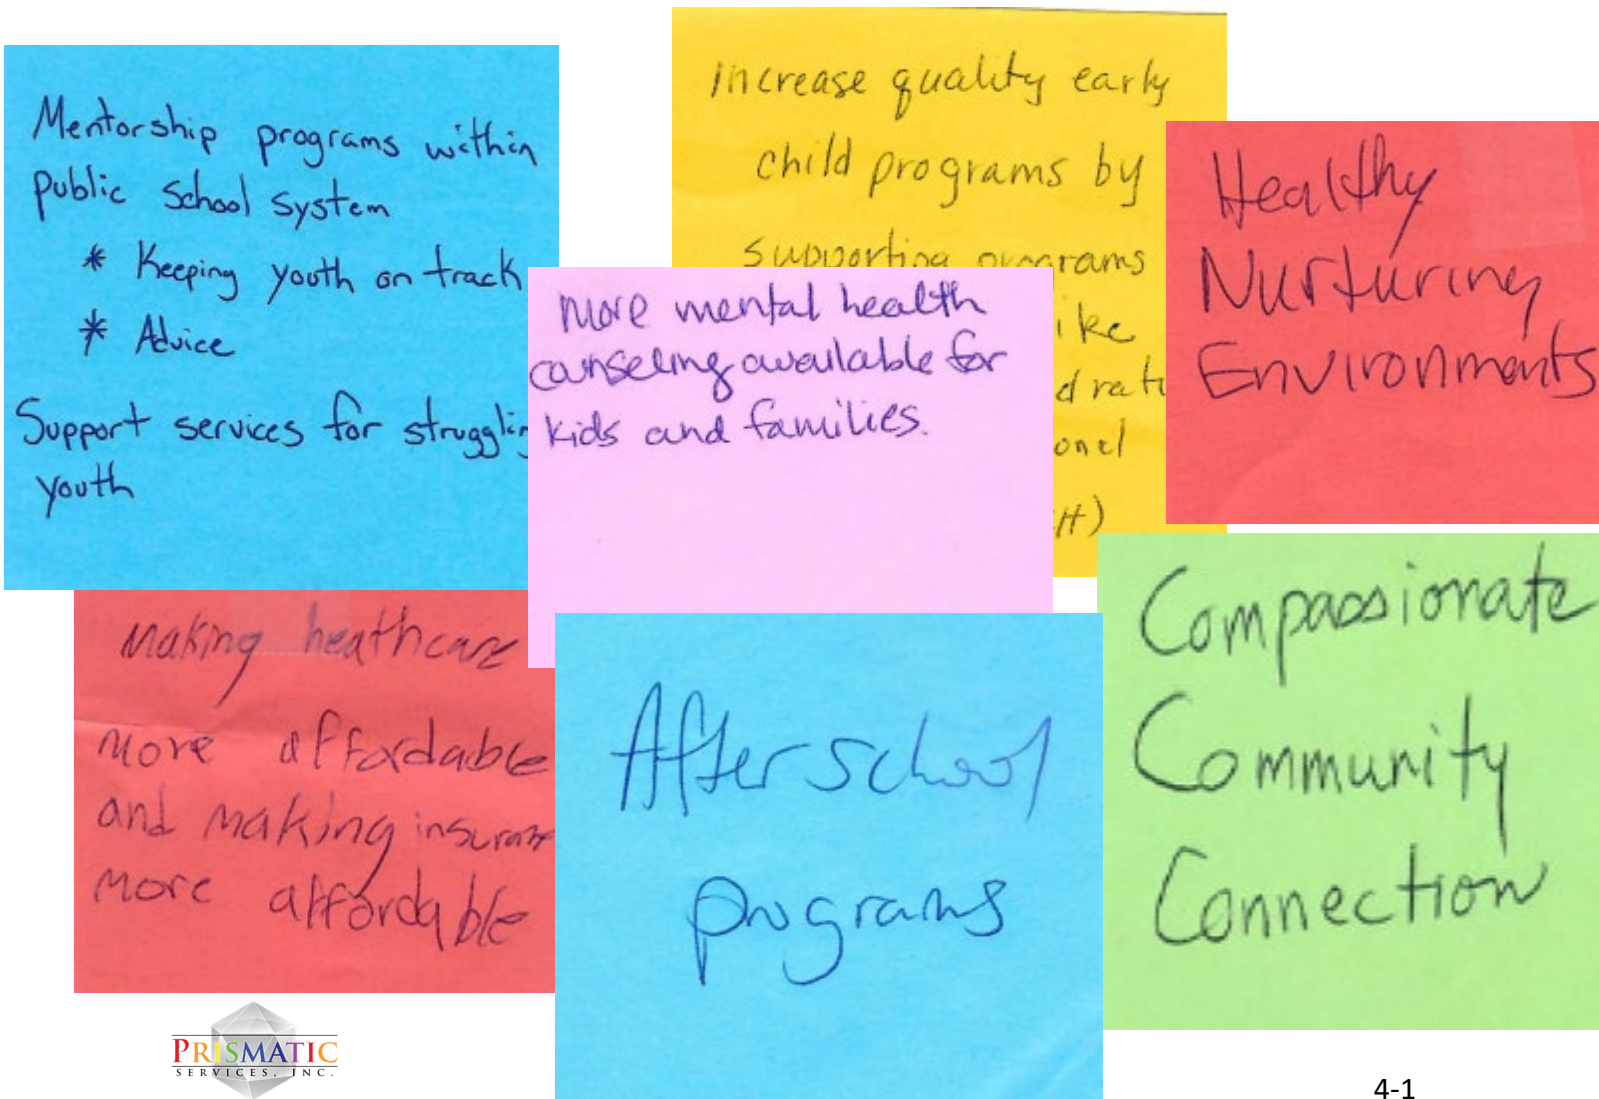 Mentorship programs within
public school system
* Keeping youth on track
* Advice
Support services for
youth
increase quality early
child programs by
supporting programs
Healthy
Nurturing
Environments
More mental health
counseling available for
kids and families.
Making heathcare
more affordable
and making
more affordable
Afterschool
programs
Compassionate
Community
Connection
PRISMATIC
SERVICES, INC.
4-1